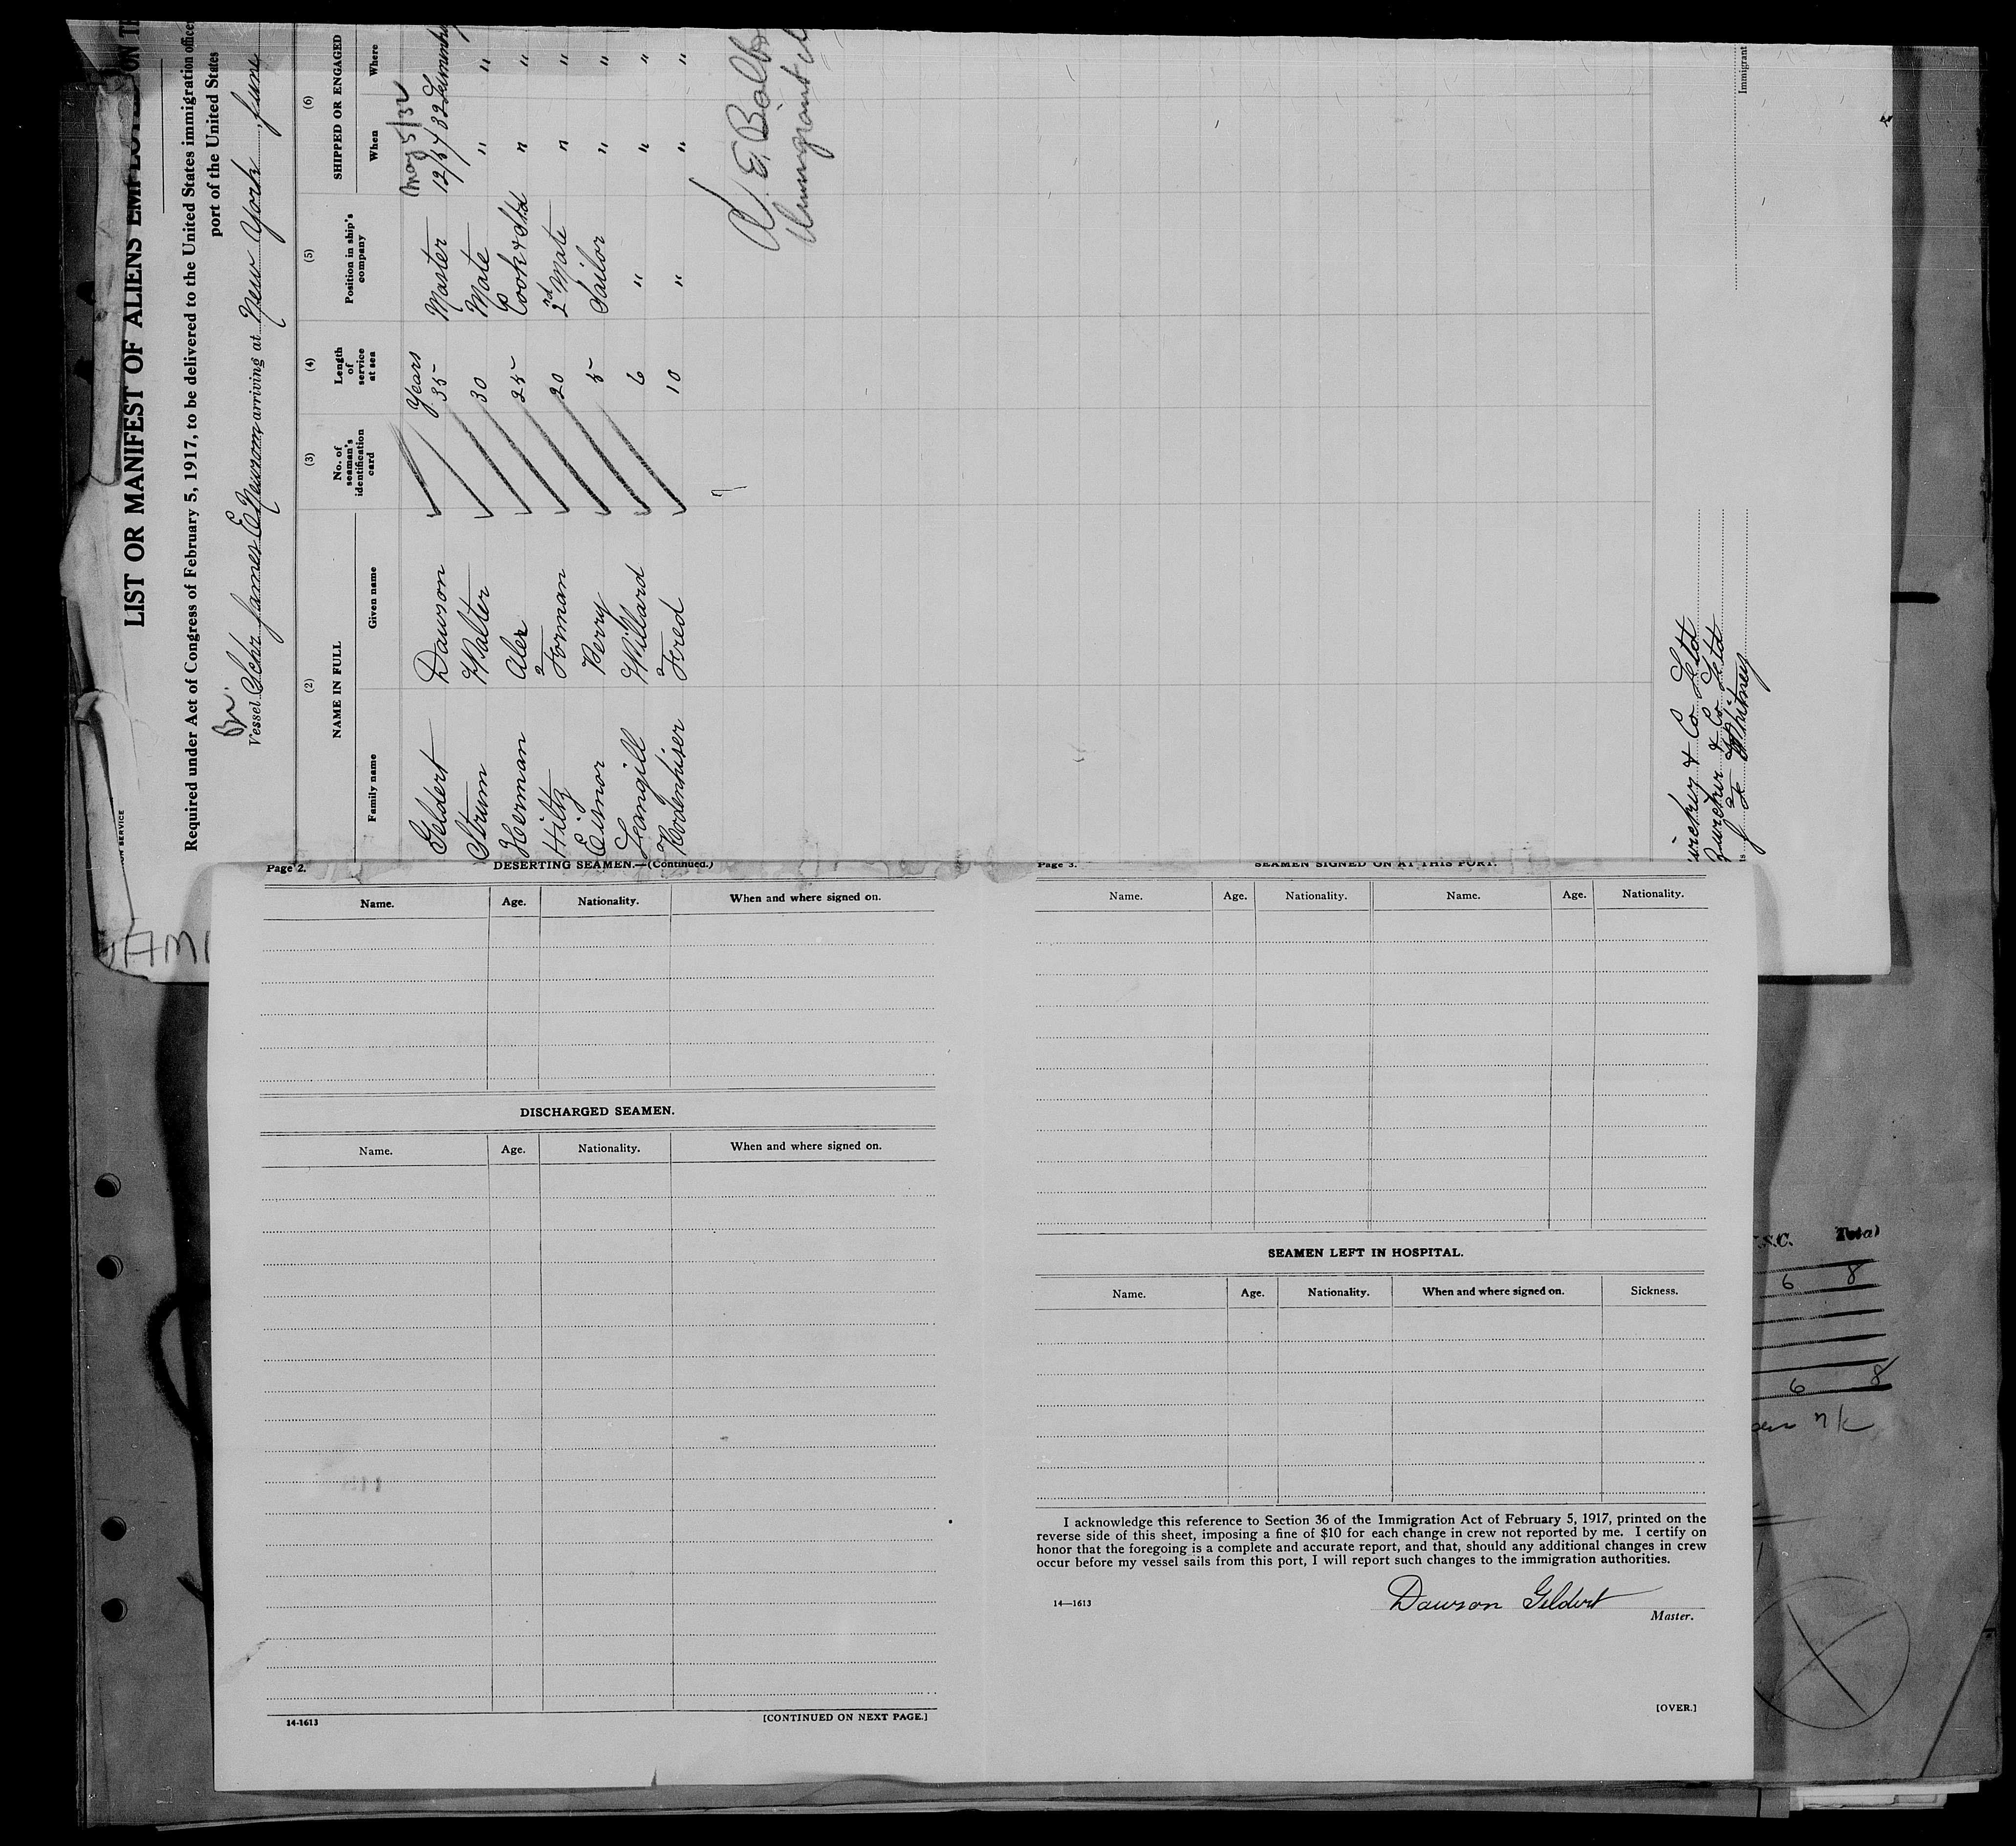 LIST OR MANIFEST OF ALIENS EMPLOYED ON TH
Required under Act of Congress of February 5, 1917, to be delivered to the United States immigration office
port of the United States
Br.
Vessel Schr James E Newsom, arriving at New York, June
(2) (3) (4) (5) (6)
NAME IN FULL No. of seaman's identification card Length of service at sea Position in ship's company SHIPPED OR ENGAGED
Family name Given name When Where
Years May 5/32
Geldert Dawson 35 Master
Strum Walter 30 Mate " "
Herman Alex 25 Cook & Std " "
Hiltz Forman 20 2nd Mate " "
Eisnor Perry 5 Sailor " "
Langill Willard 6 " " "
Rodenhiser Fred 10 " " "
7
Immigrant
& Co Ltd
Zwicker & Co Ltd
J F Whitney
Immigrant
ON SERVICE
Page 2.
DESERTING SEAMEN.—(Continued.)
Name. Age. Nationality. When and where signed on.
DISCHARGED SEAMEN.
Name. Age. Nationality. When and where signed on.
14-1613
[CONTINUED ON NEXT PAGE.]
Page 3.
SEAMEN SIGNED ON AT THIS PORT.
Name. Age. Nationality. Name. Age. Nationality.
SEAMEN LEFT IN HOSPITAL.
Name. Age. Nationality. When and where signed on. Sickness.
I acknowledge this reference to Section 36 of the Immigration Act of February 5, 1917, printed on the
reverse side of this sheet, imposing a fine of $10 for each change in crew not reported by me. I certify on
honor that the foregoing is a complete and accurate report, and that, should any additional changes in crew
occur before my vessel sails from this port, I will report such changes to the immigration authorities.
14—1613
Dawson Geldert
Master.
[OVER.]
S.C. Total
6 8
6 8